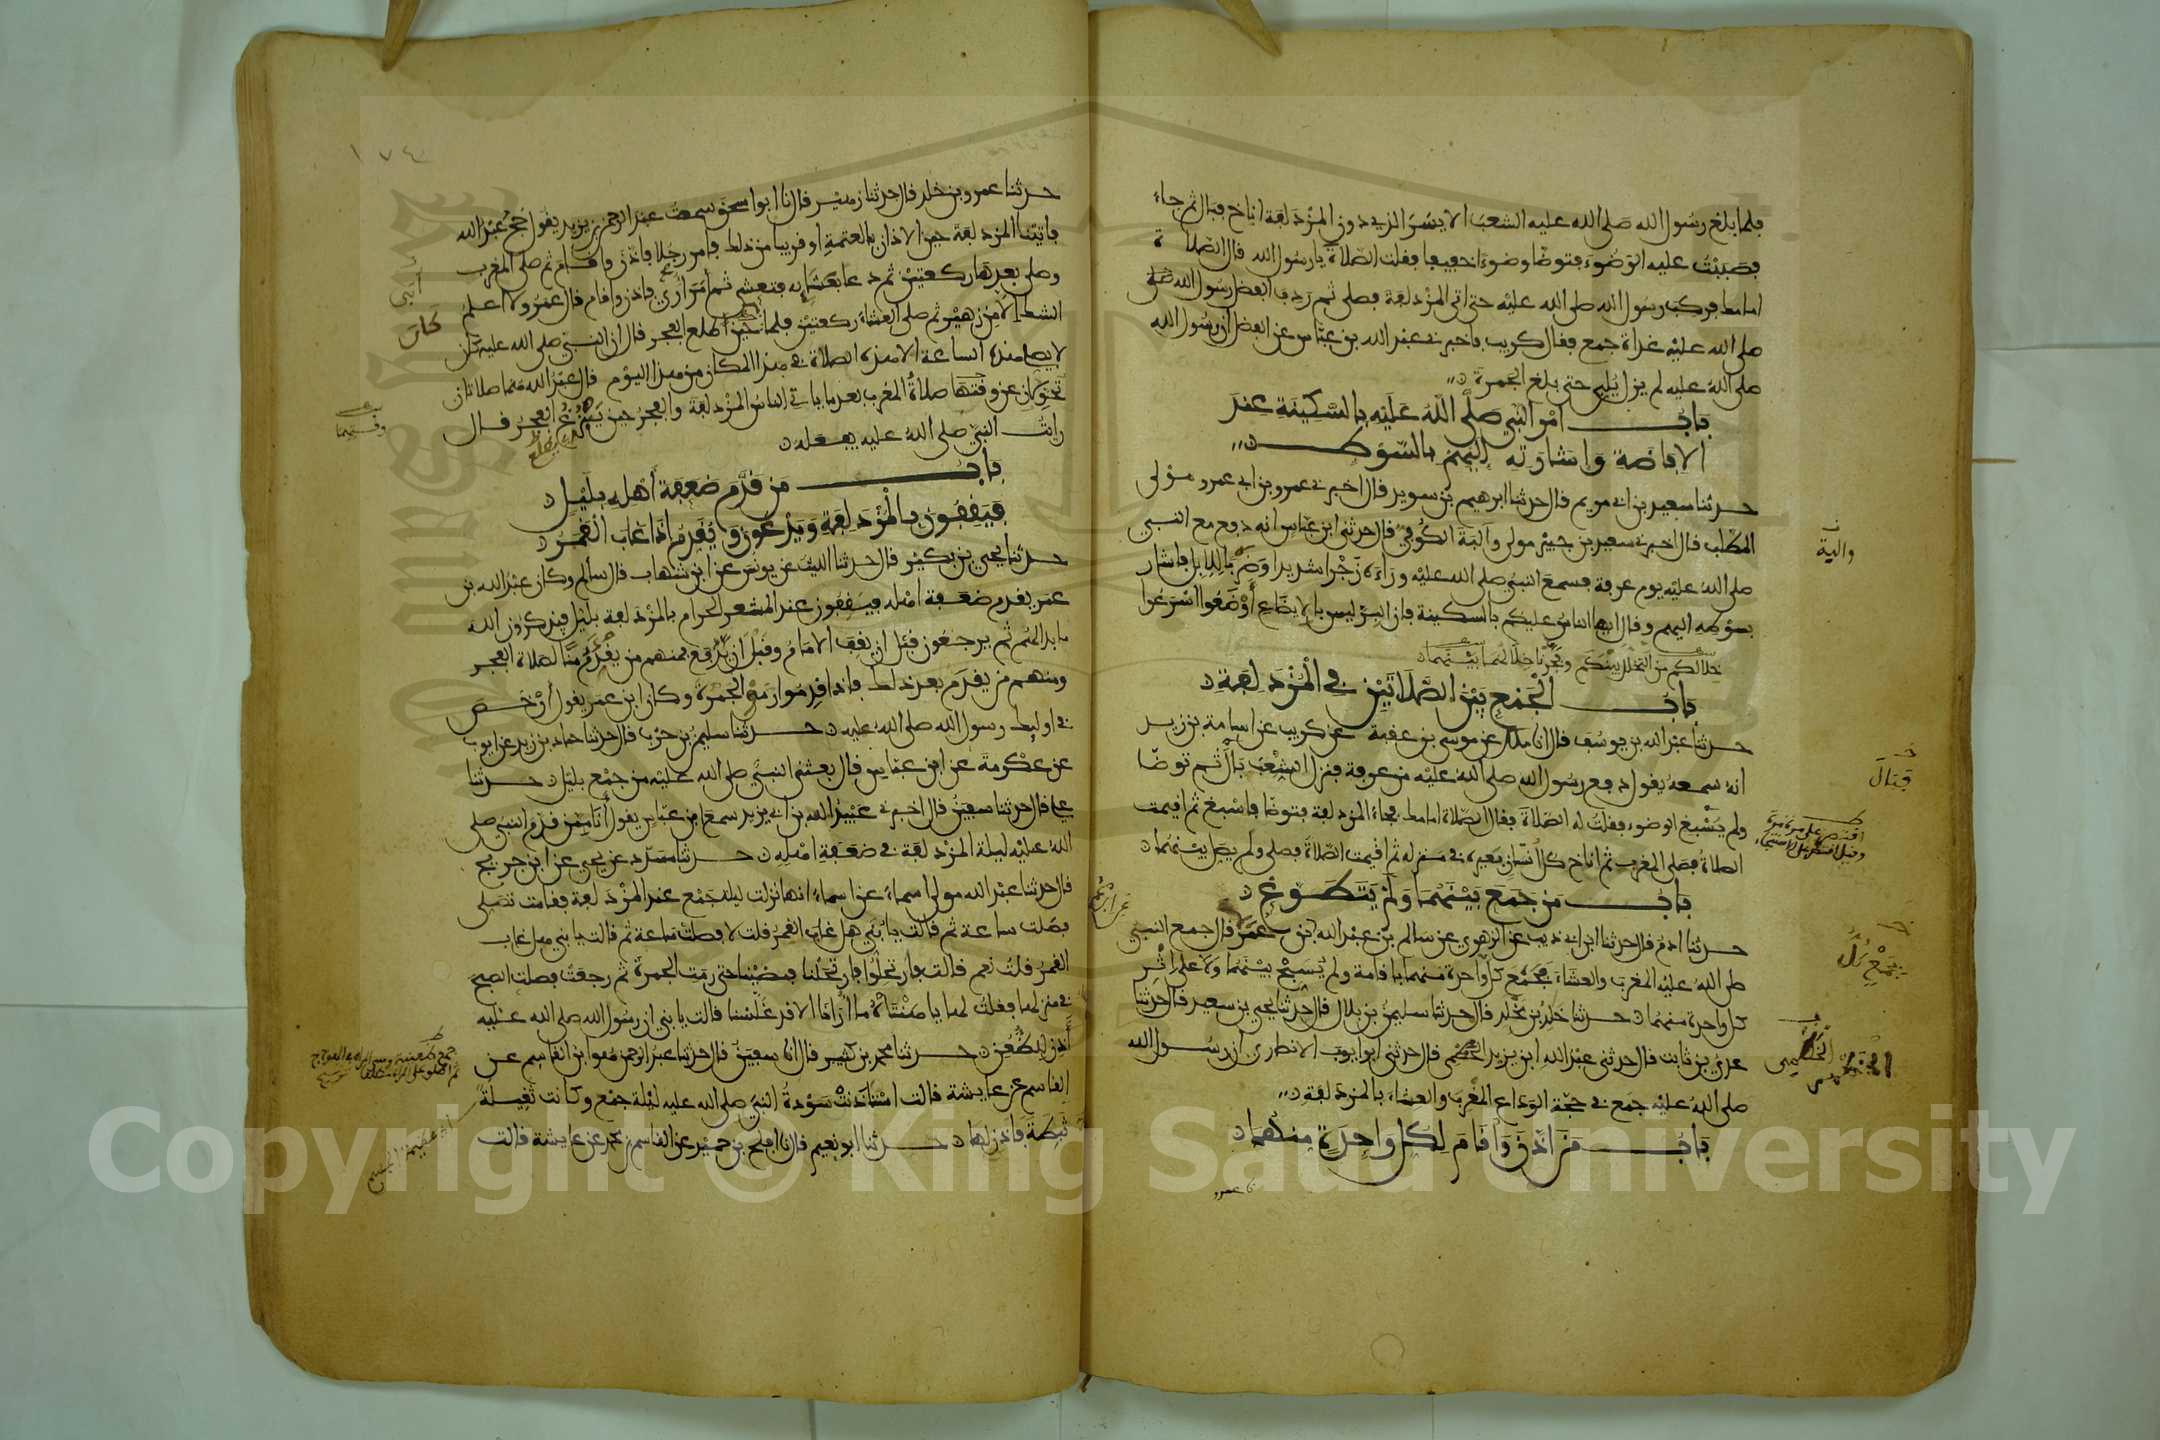 فلما بلغ رسول الله صلى الله عليه الشعب الايسر الذي دون المزدلفة اناخ فبال ثم جاء
فصببت عليه الوضوء فتوضا وضوءا خفيفا فقلت الصلاة يارسول الله قال الصلاة
امامك فركب رسول الله صلى الله عليه حتى اتى المزدلفة فصلى ثم ردف الفضل رسول الله
صلى الله عليه غداة جمع فقال كريب فاخبرني عبد الله بن عباس عن الفضل ان رسول الله
صلى الله عليه لم يزل يلبي حتى بلغ الجمرة
باب امر النبي صلى الله عليه بالسكينة عند
الافاضة واشارته اليهم بالسوط
حدثنا سعيد بن ابي مريم قال حدثنا ابرهيم بن سويد قال اخبرني عمرو بن ابي عمرو مولى
المطلب قال اخبرني سعيد بن جبير مولى والبة الكوفي قال حدثني ابن عباس انه دفع مع النبي
صلى الله عليه يوم عرفة فسمع النبي صلى الله عليه وراءه زجرا شديدا وضربا للابل فاشار
بسوطه اليهم وقال ايها الناس عليكم بالسكينة فان البر ليس بالايضاع أوضعوا أسرعوا
خلالكم من التخلل بينكم وفجرنا خلالهما بينهما
باب الجمع بين الصلاتين في المزدلفة
حدثنا عبد الله بن يوسف قال انا ملك عن موسى بن عقبة عن كريب عن اسامة بن زيد
انه سمعه يقول دفع رسول الله صلى الله عليه من عرفة فنزل الشعب بال ثم توضا
ولم يسبغ الوضوء فقلت له الصلاة فقال الصلاة امامك فجاء المزدلفة فتوضا فاسبغ ثم اقيمت
الصلاة فصلى المغرب ثم اناخ كل انسان بعيره في منزله ثم اقيمت الصلاة فصلى ولم يصل بينهما
باب من جمع بينهما ولم يتطوع
حدثنا ادم قال حدثنا ابن ابي ذيب عن الزهري عن سالم بن عبد الله بن عمر قال جمع النبي
صلى الله عليه المغرب والعشاء بجمع كل واحدة منهما باقامة ولم يسبح بينهما ولا على اثر
كل واحدة منهما حدثنا خلد بن مخلد قال حدثنا سليمن بن بلال قال حدثنا يحيى بن سعيد قال حدثنا
عدي بن ثابت قال حدثني عبد الله ابن يزيد الخطمي قال حدثني ابو ايوب الانصاري ان رسول الله
صلى الله عليه جمع في حجة الوداع المغرب والعشاء بالمزدلفة
باب من اذن واقام لكل واحدة منهما
والبة
فبال
بجمع كل
الخطمي
١٧٤
حدثنا عمرو بن خلد قال حدثنا زهير قال نا ابو اسحق سمعت عبد الرحمن بن يزيد يقول حج عبد الله
فاتينا المزدلفة حين الاذان بالعتمة او قريبا من ذلك فامر رجلا فاذن واقام ثم صلى المغرب
وصلى بعدها ركعتين ثم دعا بعشايه فتعشى ثم أمر أرى فاذن واقام قال عمرو ولا اعلم
الشك الا من زهير ثم صلى العشاء ركعتين فلما حين طلع الفجر قال ان النبي صلى الله عليه كان
لا يصلي هذه الساعة الا هذه الصلاة في هذا المكان من هذا اليوم قال عبد الله هما صلاتان
تحولان عن وقتهما صلاة المغرب بعد ما ياتي الناس المزدلفة والفجر حين يبزغ الفجر قال
رايت النبي صلى الله عليه يفعله
باب من قدم ضعفة أهله بليل
فيقفون بالمزدلفة ويدعون ويقدم اذا غاب القمر
حدثنا يحيى بن بكير قال حدثنا الليث عن يونس عن ابن شهاب قال سالم وكان عبد الله بن
عمر يقدم ضعفة اهله فيقفون عند المشعر الحرام بالمزدلفة بليل فيذكرون الله
ما بدا لهم ثم يرجعون قبل ان يقف الامام وقبل ان يدفع فمنهم من يقدم منا لصلاة الفجر
ومنهم من يقدم بعد ذلك فاذا قدموا رموا الجمرة وكان ابن عمر يقول أرخص
في اوليك رسول الله صلى الله عليه حدثنا سليمن بن حرب قال حدثنا حماد بن زيد عن ايوب
عن عكرمة عن ابن عباس قال بعثني النبي صلى الله عليه من جمع بليل حدثنا
علي قال حدثنا سفين قال اخبرني عبيد الله بن ابي يزيد سمع ابن عباس يقول أنا ممن قدم النبي صلى
الله عليه ليلة المزدلفة في ضعفة اهله حدثنا مسدد عن يحيى عن ابن جريج
قال حدثنا عبد الله مولى اسماء عن اسماء انها نزلت ليلة جمع عند المزدلفة فقامت تصلي
فصلت ساعة ثم قالت يا بني هل غاب القمر قلت لا فصلت ساعة ثم قالت يا بني هل غاب
القمر قلت نعم قالت فارتحلوا فارتحلنا فمضينا حتى رمت الجمرة ثم رجعت فصلت الصبح
في منزلها فقلت لها يا هنتاه ما أرانا الا قد غلسنا قالت يا بني ان رسول الله صلى الله عليه
أذن للظعن حدثنا محمد بن كثير قال انا سفين قال حدثنا عبد الرحمن هو ابن القاسم عن
القاسم عن عايشة قالت استاذنت سودة النبي صلى الله عليه ليلة جمع وكانت ثقيلة
ثبطة فاذن لها حدثنا ابو نعيم قال نا افلح بن حميد عن القاسم بن محمد عن عايشة قالت
كان
Copyright © King Saud University